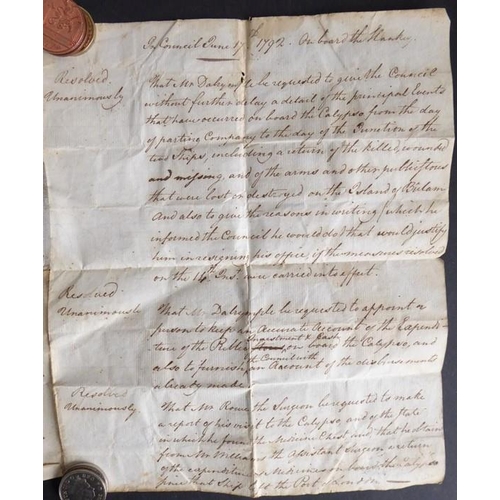 In Council June 17th 1792. On board the Hankey
Resolved Unanimously That Mr Dalrymple be requested to give the Council
without further delay a detail of the principal Events
that have occurred on board the Calypso from the day
of parting Company to the day of the Junction of the
two Ships, including a return of the killed, wounded
and missing, and of the arms and other publick stores
that were lost or destroyed on the Island of Bulam
And also to give the reasons in writing, which he
informed the Council he would do that would justify
him in resigning his office, if the measures resolved
on the 14th Inst. were carried into effect.
Resolved Unanimously That Mr Dalrymple be requested to appoint a
person to keep an Accurate Account of the Expendi-
ture of the Public Investment & Cash on board the Calypso, and
also to furnish the Council with an Account of the disbursements
already made
Resolved Unanimously That Mr Rowe the Surgeon be requested to make
a report of his visit to the Calypso and of the State
in which he found the Medicine Chest and that he obtain
from Mr Williams the Assistant Surgeon a return
of the expenditure of Medicines on board the Calypso
since that Ship left the Port of London